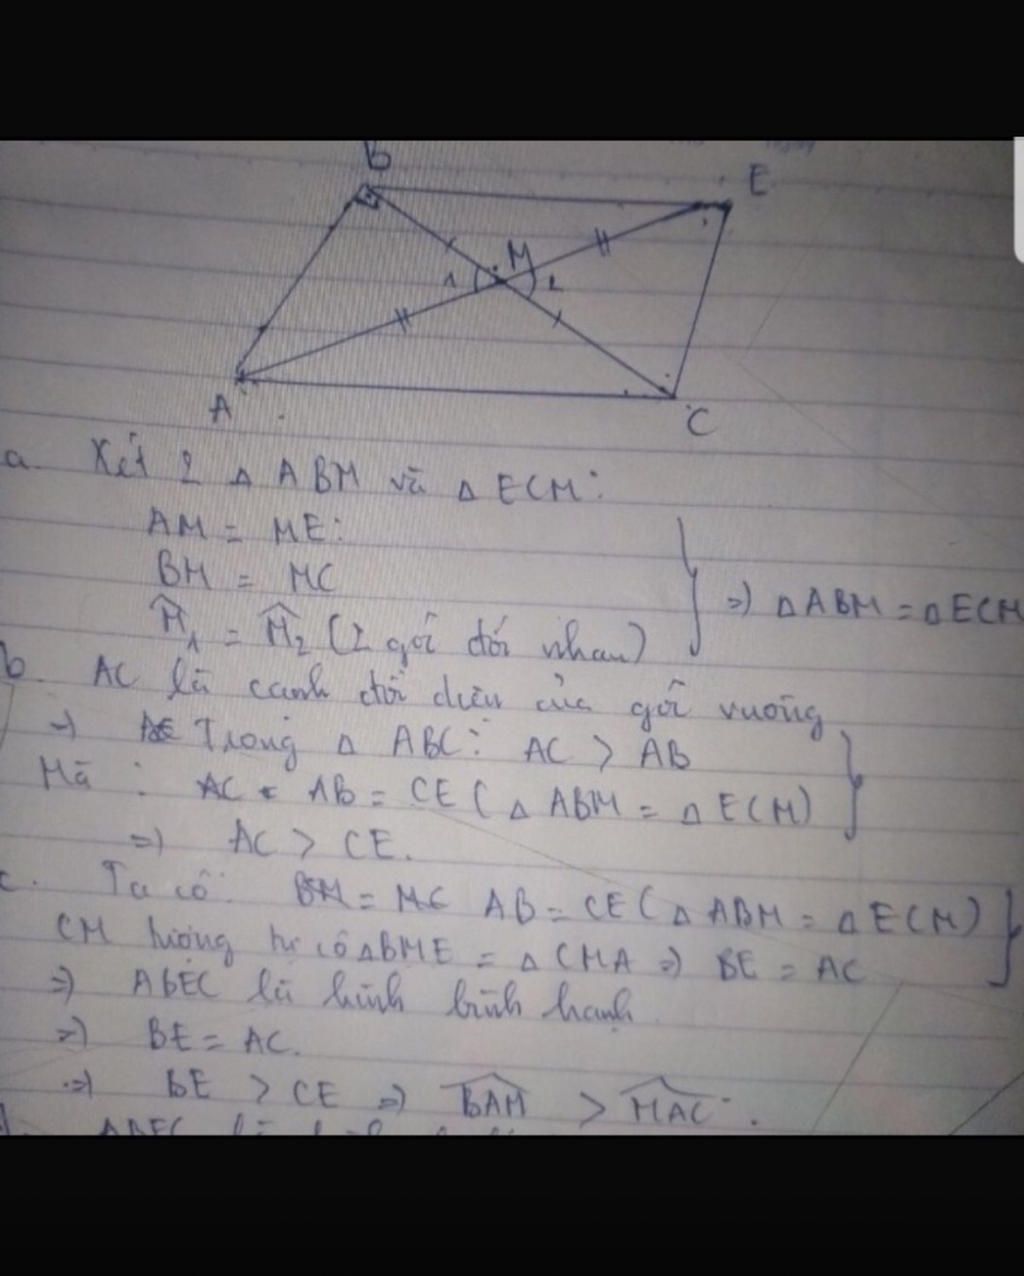 B
E
M
1
2
A
C
a. Xét 2 Δ ABM và Δ ECM:
AM = ME:
BM = MC
M̂₁ = M̂₂ (2 góc đối nhau)
} => Δ ABM = Δ ECM
b. AC là cạnh đối diện của góc vuông
=> Trong Δ ABC: AC > AB
Mà : AB = CE (Δ ABM = Δ ECM)
=> AC > CE.
c. Ta có: AB = CE (Δ ABM = Δ ECM)
CM tương tự có Δ BME = Δ CMA => BE = AC
=> ABEC là hình bình hành
=> BE = AC.
=> BE > CE => BAM > MAC.